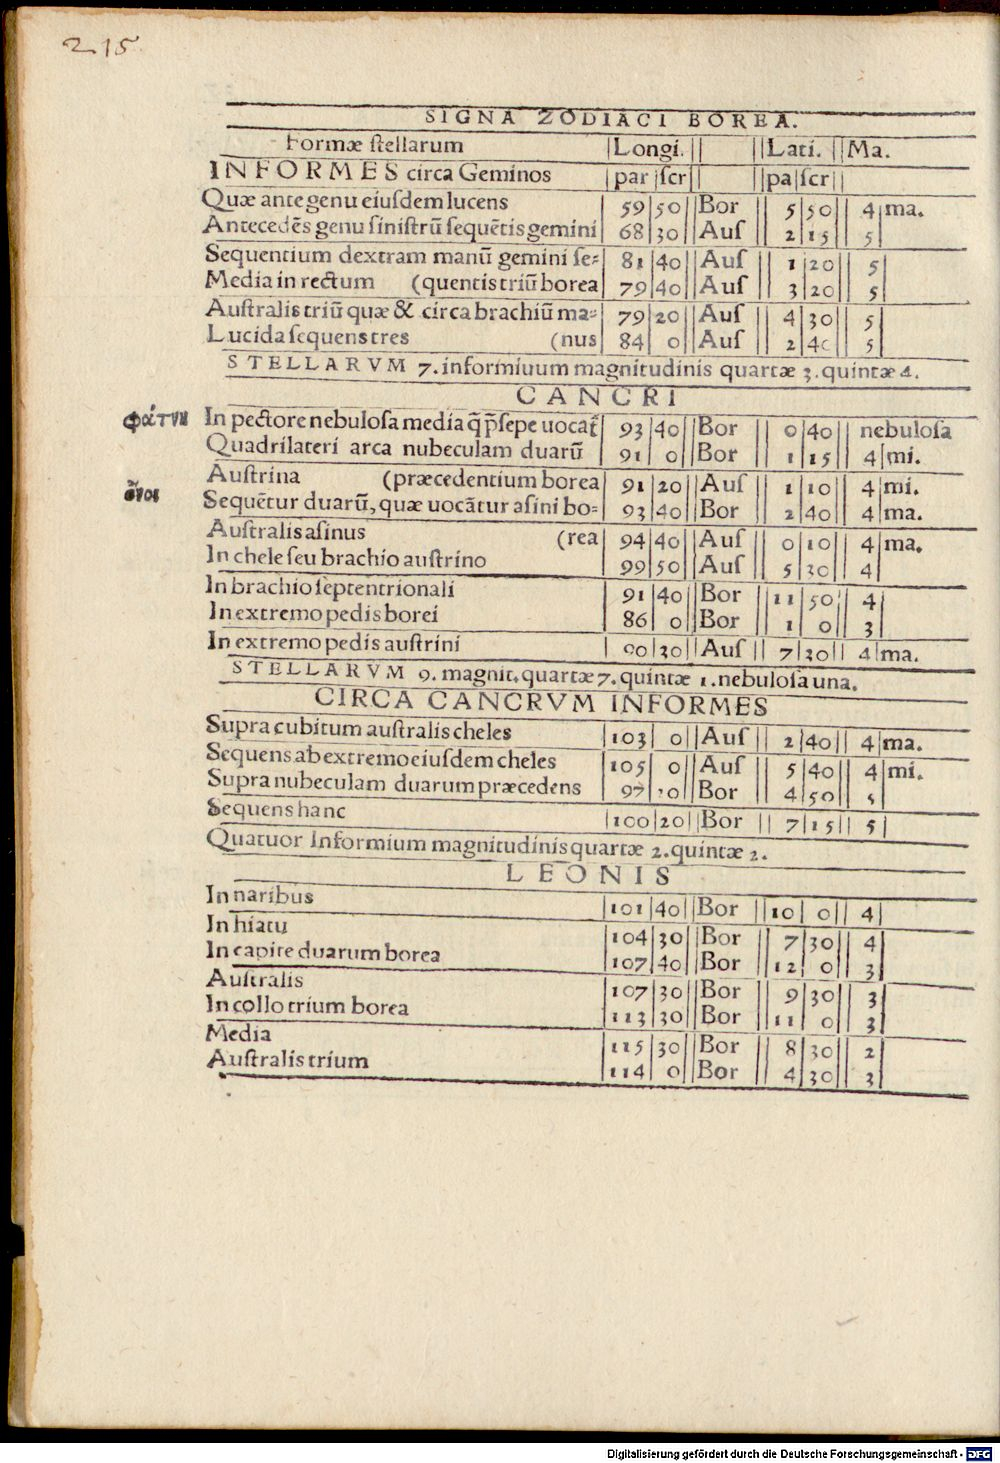 215
SIGNA ZODIACI BOREA.
Formæ ſtellarum |Longi.|| ||Lati.||Ma.
INFORMES circa Geminos |par|ſcr|| ||pa|ſcr||
Quæ ante genu eiuſdem lucens 59|50||Bor || 5|50|| 4|ma.
Antecedēs genu ſiniſtrū ſequētis gemini 68|30||Auſ || 2|15|| 5|
Sequentium dextram manū gemini ſe- 81|40||Auſ || 1|20|| 5|
Media in rectum (quentis triū borea 79|40||Auſ || 3|20|| 5|
Auſtralis triū quæ & circa brachiū ma- 79|20||Auſ || 4|30|| 5|
Lucida ſequens tres (nus 84|0||Auſ || 2|40|| 5|
STELLARVM 7. informiuum magnitudinis quartæ 3. quintæ 4.
CANCRI
φάτνη In pectore nebuloſa media q̄ p̄ſepe uocat̄ 93|40||Bor || 0|40|| nebuloſa
Quadrilateri arca nubeculam duarū 91|0||Bor || 1|15|| 4|mi.
Auſtrina (præcedentium borea 91|20||Auſ || 1|10|| 4|mi.
ὄνοι Sequētur duarū, quæ uocātur aſini bo- 93|40||Bor || 2|40|| 4|ma.
Auſtralis aſinus (rea 94|40||Auſ || 0|10|| 4|ma.
In chele ſeu brachio auſtrino 99|50||Auſ || 5|30|| 4|
In brachio ſeptentrionali 91|40||Bor ||11|50|| 4|
In extremo pedis borei 86|0||Bor || 1|0|| 3|
In extremo pedis auſtrini |30||Auſ || 7|30|| 4|ma.
STELLARVM 9. magnit. quartæ 7. quintæ 1. nebuloſa una.
CIRCA CANCRVM INFORMES
Supra cubitum auſtralis cheles |103|0||Auſ || 2|40|| 4|ma.
Sequens ab extremo eiuſdem cheles |105|0||Auſ || 5|40|| 4|mi.
Supra nubeculam duarum præcedens 97| ||Bor || 4|50|| 5|
Sequens hanc |100|20||Bor || 7|15|| 5|
Quatuor Informium magnitudinis quartæ 2. quintæ 2.
LEONIS
In naribus |101|40||Bor ||10|0|| 4|
In hiatu |104|30||Bor || 7|30|| 4|
In capite duarum borea |107|40||Bor ||12|0|| 3|
Auſtralis |107|30||Bor || 9|30|| 3|
In collo trium borea |113|30||Bor ||11|0|| 3|
Media |115|30||Bor || 8|30|| 2|
Auſtralis trium |114|0||Bor || 4|30|| 3|
Digitalisierung gefördert durch die Deutsche Forschungsgemeinschaft - DFG